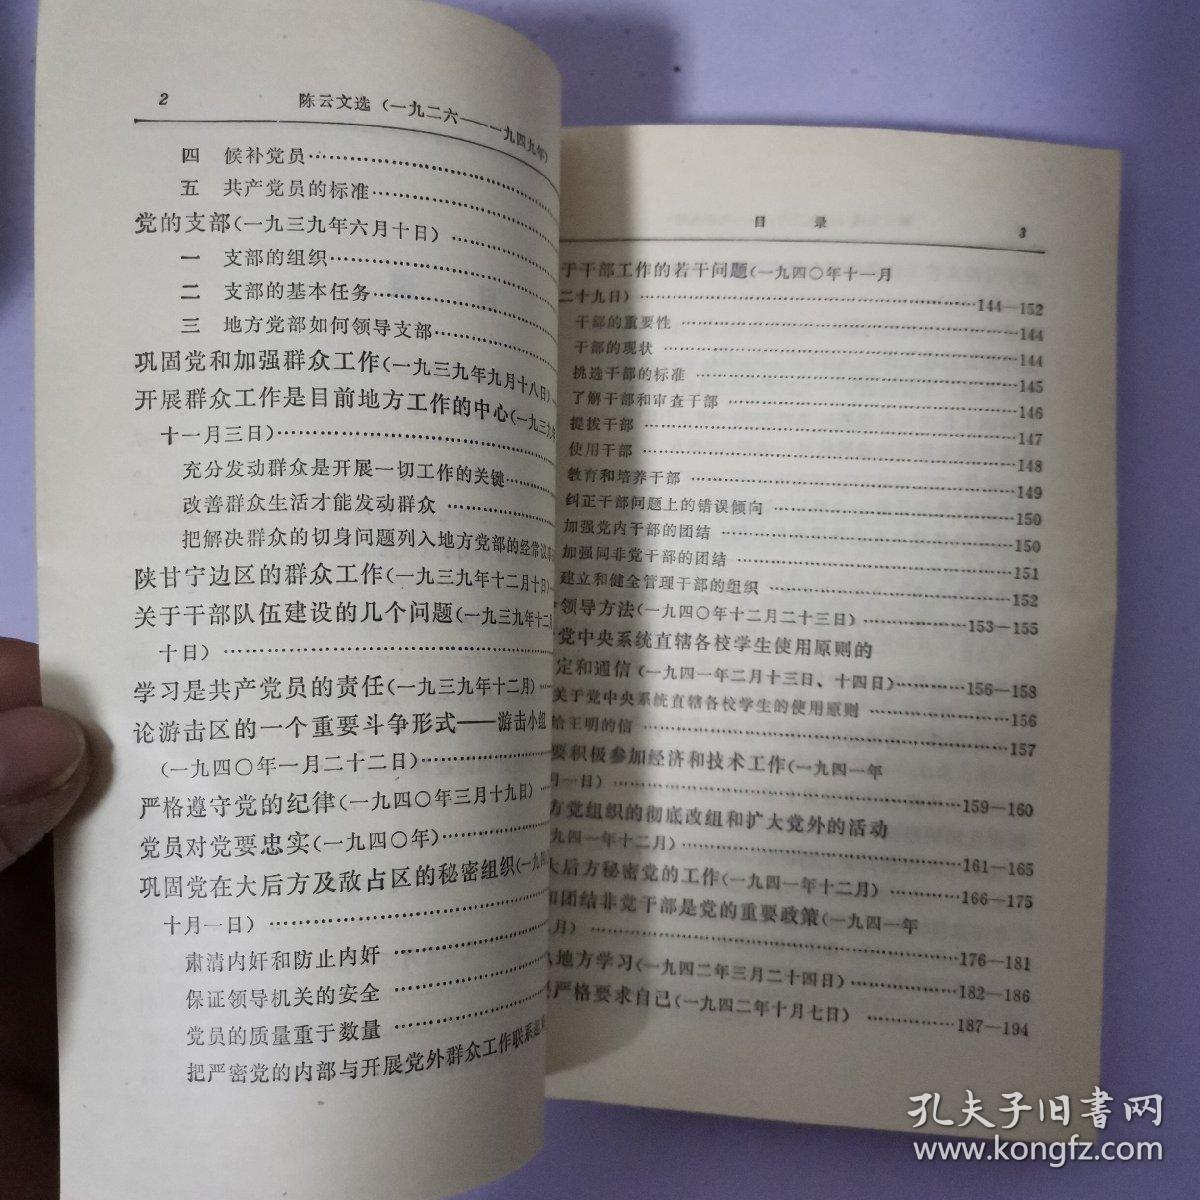 2 陈云文选（一九二六——一九四九年）
四 候补党员
五 共产党员的标准
党的支部（一九三九年六月十日）
一 支部的组织
二 支部的基本任务
三 地方党部如何领导支部
巩固党和加强群众工作（一九三九年九月十八日）
开展群众工作是目前地方工作的中心（一九三九年
十一月三日）
充分发动群众是开展一切工作的关键
改善群众生活才能发动群众
把解决群众的切身问题列入地方党部的经常议
陕甘宁边区的群众工作（一九三九年十二月十日）
关于干部队伍建设的几个问题（一九三九年十二月
十日）
学习是共产党员的责任（一九三九年十二月）
论游击区的一个重要斗争形式——游击小组
（一九四〇年一月二十二日）
严格遵守党的纪律（一九四〇年三月十九日）
党员对党要忠实（一九四〇年）
巩固党在大后方及敌占区的秘密组织（一九四
十月一日）
肃清内奸和防止内奸
保证领导机关的安全
党员的质量重于数量
把严密党的内部与开展党外群众工作联系起
目 录 3
于干部工作的若干问题（一九四〇年十一月
二十九日） 144—152
干部的重要性 144
干部的现状 144
挑选干部的标准 145
了解干部和审查干部 146
提拔干部 147
使用干部 148
教育和培养干部 149
纠正干部问题上的错误倾向 150
加强党内干部的团结 150
加强同非党干部的团结 151
建立和健全管理干部的组织 152
领导方法（一九四〇年十二月二十三日） 153—155
党中央系统直辖各校学生使用原则的
定和通信（一九四一年二月十三日、十四日） 156—158
关于党中央系统直辖各校学生的使用原则 156
给王明的信 157
要积极参加经济和技术工作（一九四一年
月一日） 159—160
方党组织的彻底改组和扩大党外的活动
九四一年十二月） 161—165
大后方秘密党的工作（一九四一年十二月） 166—175
和团结非党干部是党的重要政策（一九四一年
月） 176—181
地方学习（一九四二年三月二十四日） 182—186
严格要求自己（一九四二年十月七日） 187—194
孔夫子旧书网
www.kongfz.com